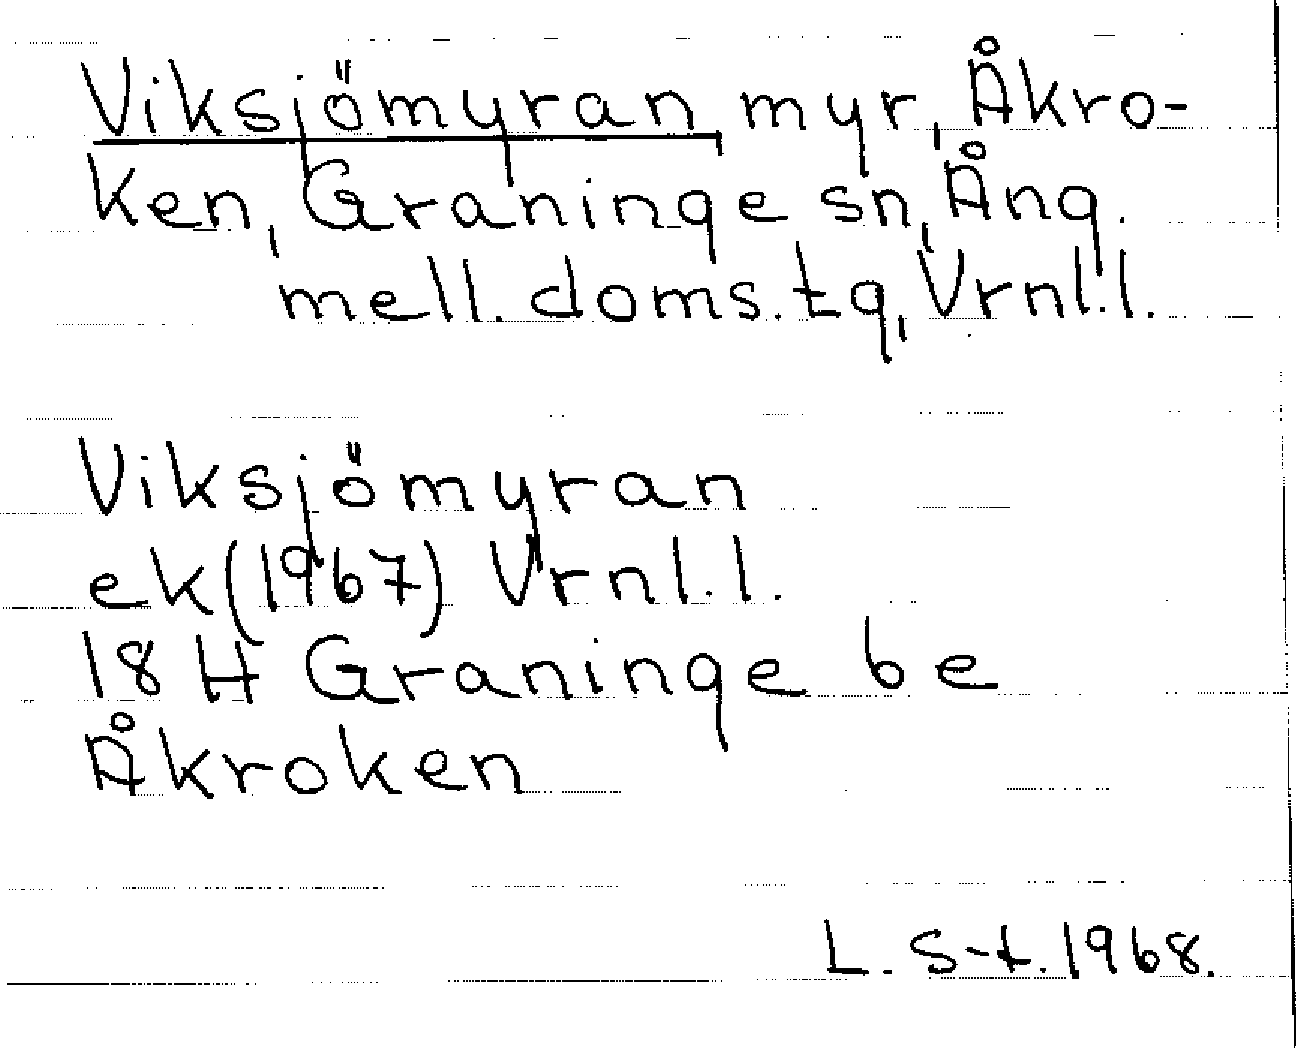 Viksjömyran, myr, Åkro-
ken, Graninge sn, Ång.
mell. doms. tg, Vrnl.l.
Viksjömyran
ek (1967) Vrnl.l.
18 H Graninge be
Åkroken
L. S-t. 1968.